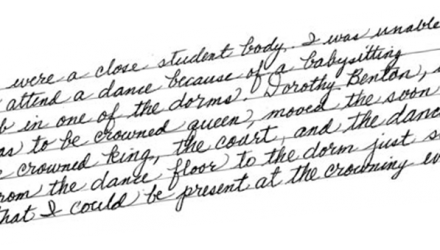 were a close student body. I was unable
attend a dance because of a babysitting
b in one of the dorms. Dorothy Benton, s
as to be crowned queen, moved the soon
e crowned king, the court, and the danc
rom the dance floor to the dorm just s
that I could be present at the crowning ev